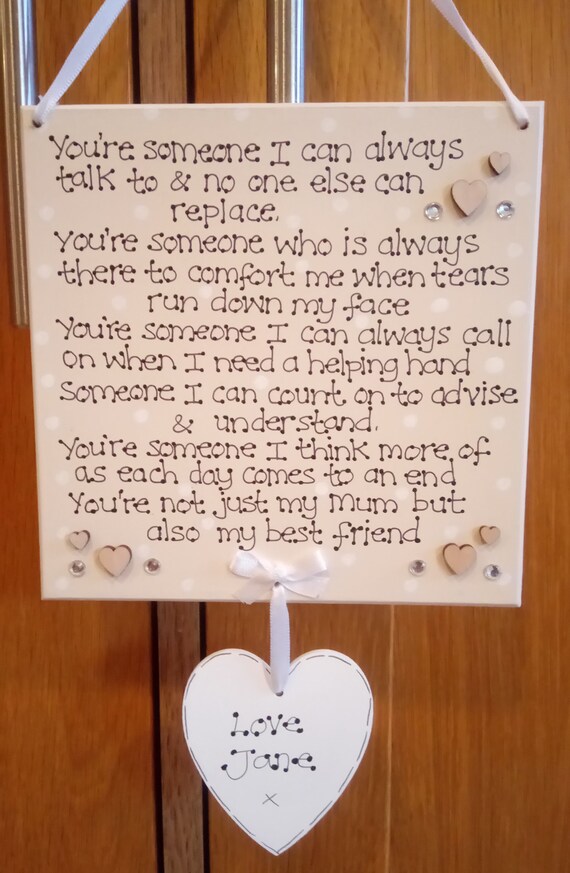 You're someone I can always
talk to & no one else can
replace.
You're someone who is always
there to comfort me when tears
run down my face
You're someone I can always call
on when I need a helping hand
Someone I can count on to advise
& understand.
You're someone I think more of
as each day comes to an end
You're not just my Mum but
also my best friend
Love
Jane
x